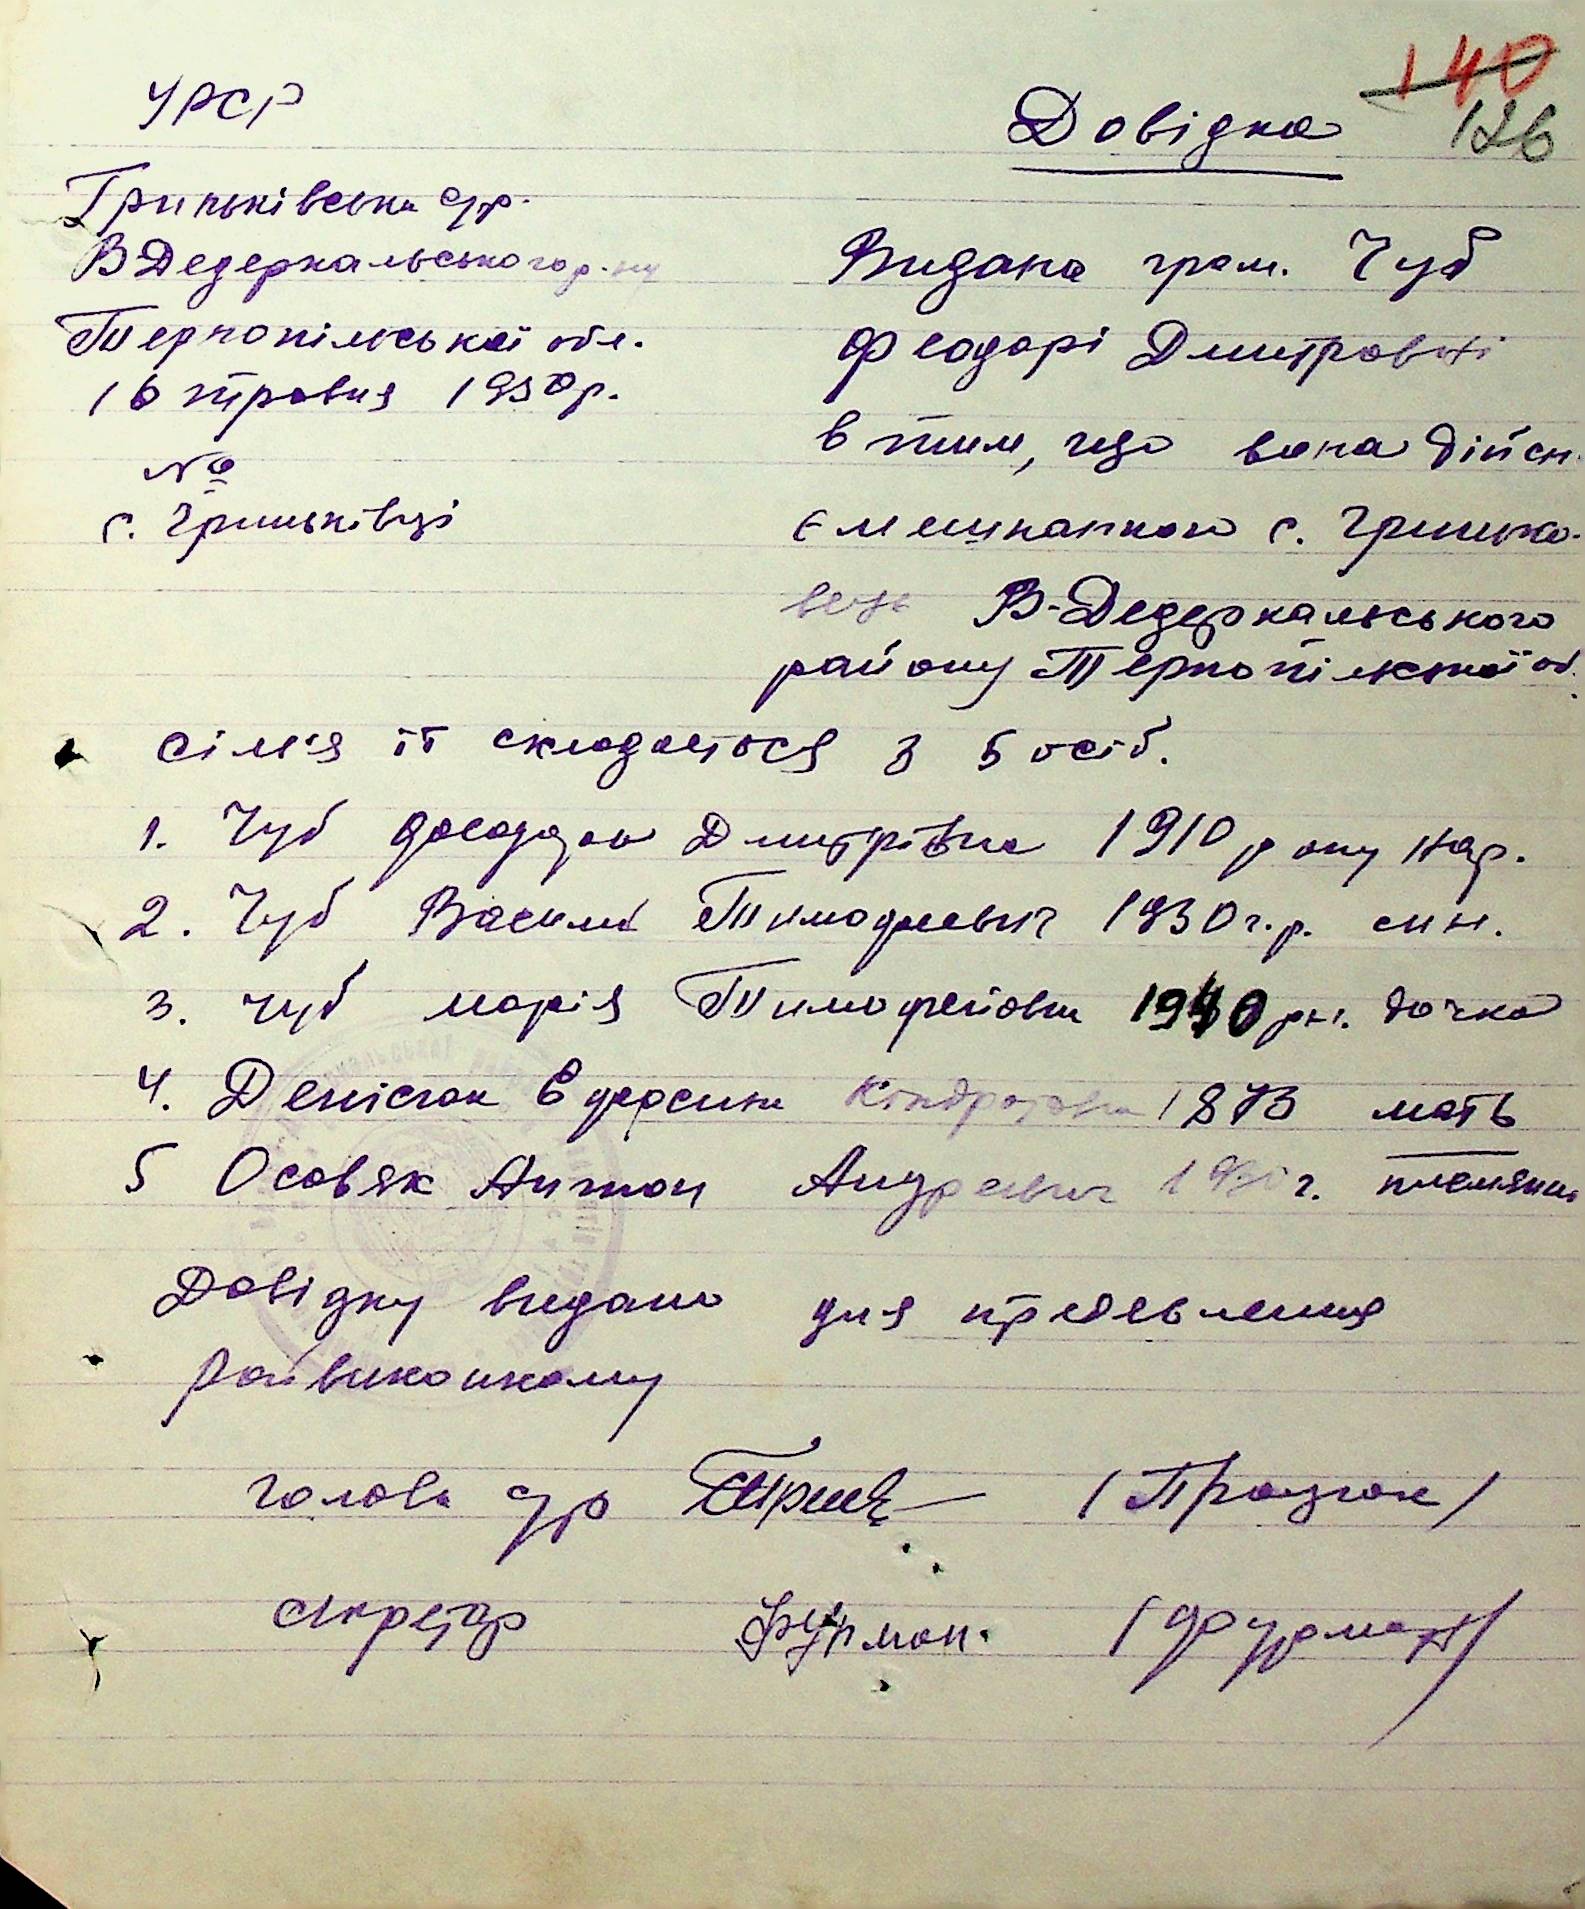 140
126
УРСР
Гриньківська с/р.
ВДедеркальського р-ну
Тернопільської обл.
16 травня 1950р.
№
с. Гриньківці
Довідка
Видана гром. Чуб
Феодорі Дмитровні
в тим, що вона дійсн.
є мешканкою с. Гринько-
вець В-Дедеркальського
району Тернопільської об.
сім'я її складається з 5 осіб.
1. Чуб Феодора Дмитрівна 1910 року нар.
2. Чуб Василь Тимофеевич 1930 г.р. син.
3. Чуб Марія Тимофейовна 1940 рн. дочка
4. Денісюк Єфросина Кіндратовна 1873 мать
5 Осов'як Антон Андреевич 1930 г. племянник
Довідку видано для предявлення
Райвиконкому
Голова с/р (Працюк)
Секретар Фурман. (Фурман)